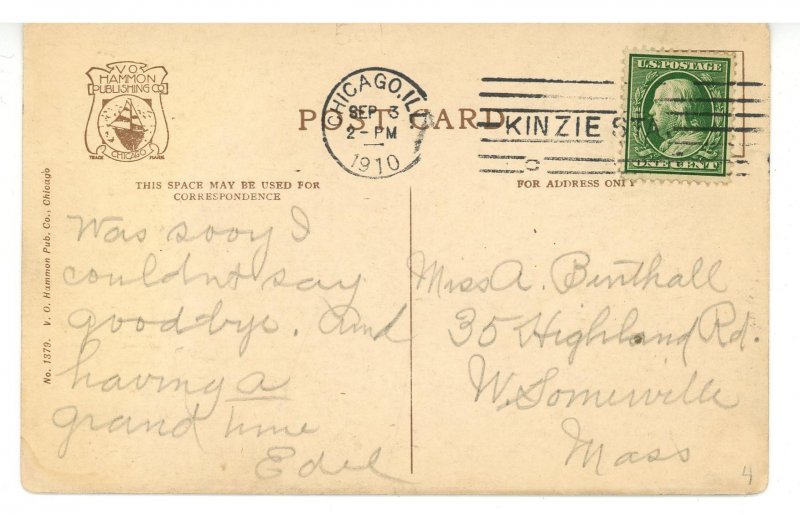 V O
HAMMON
PUBLISHING CO
TRADE MARK
CHICAGO
POST CARD
CHICAGO, ILL
SEP 3
2-PM
1910
KINZIE STA
U.S. POSTAGE
ONE CENT
THIS SPACE MAY BE USED FOR
CORRESPONDENCE
FOR ADDRESS ONLY
No. 1379. V. O. Hammon Pub. Co., Chicago
Was sooy I
couldn't say
goodbye. And
having a
grand time
Edel
Miss A. Binthall
35 Highland Rd.
W. Somerville
Mass
4